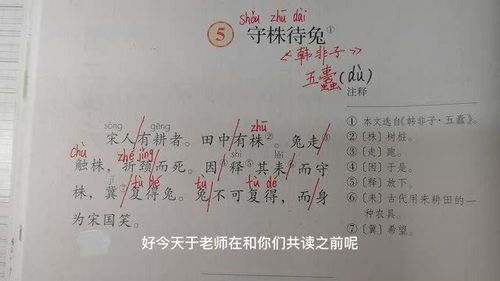 shǒu zhū dài
5 守株待兔①
《韩非子》
五蠹(dù)
注释
sòng gēng zhū
宋人/有耕者。田中/有株②。兔走/③
chù zhé jǐng shì lěi
触株,折颈/而死。因④/释⑤其耒⑥/而守
fù dé tù fù dé
株,冀⑦/复得兔。兔/不可复得,而/身
为宋国笑。
① 本文选自《韩非子·五蠹》。
② 〔株〕树桩。
③ 〔走〕跑。
④ 〔因〕于是。
⑤ 〔释〕放下。
⑥ 〔耒〕古代用来耕田的一
种农具。
⑦ 〔冀〕希望。
好今天于老师在和你们共读之前呢